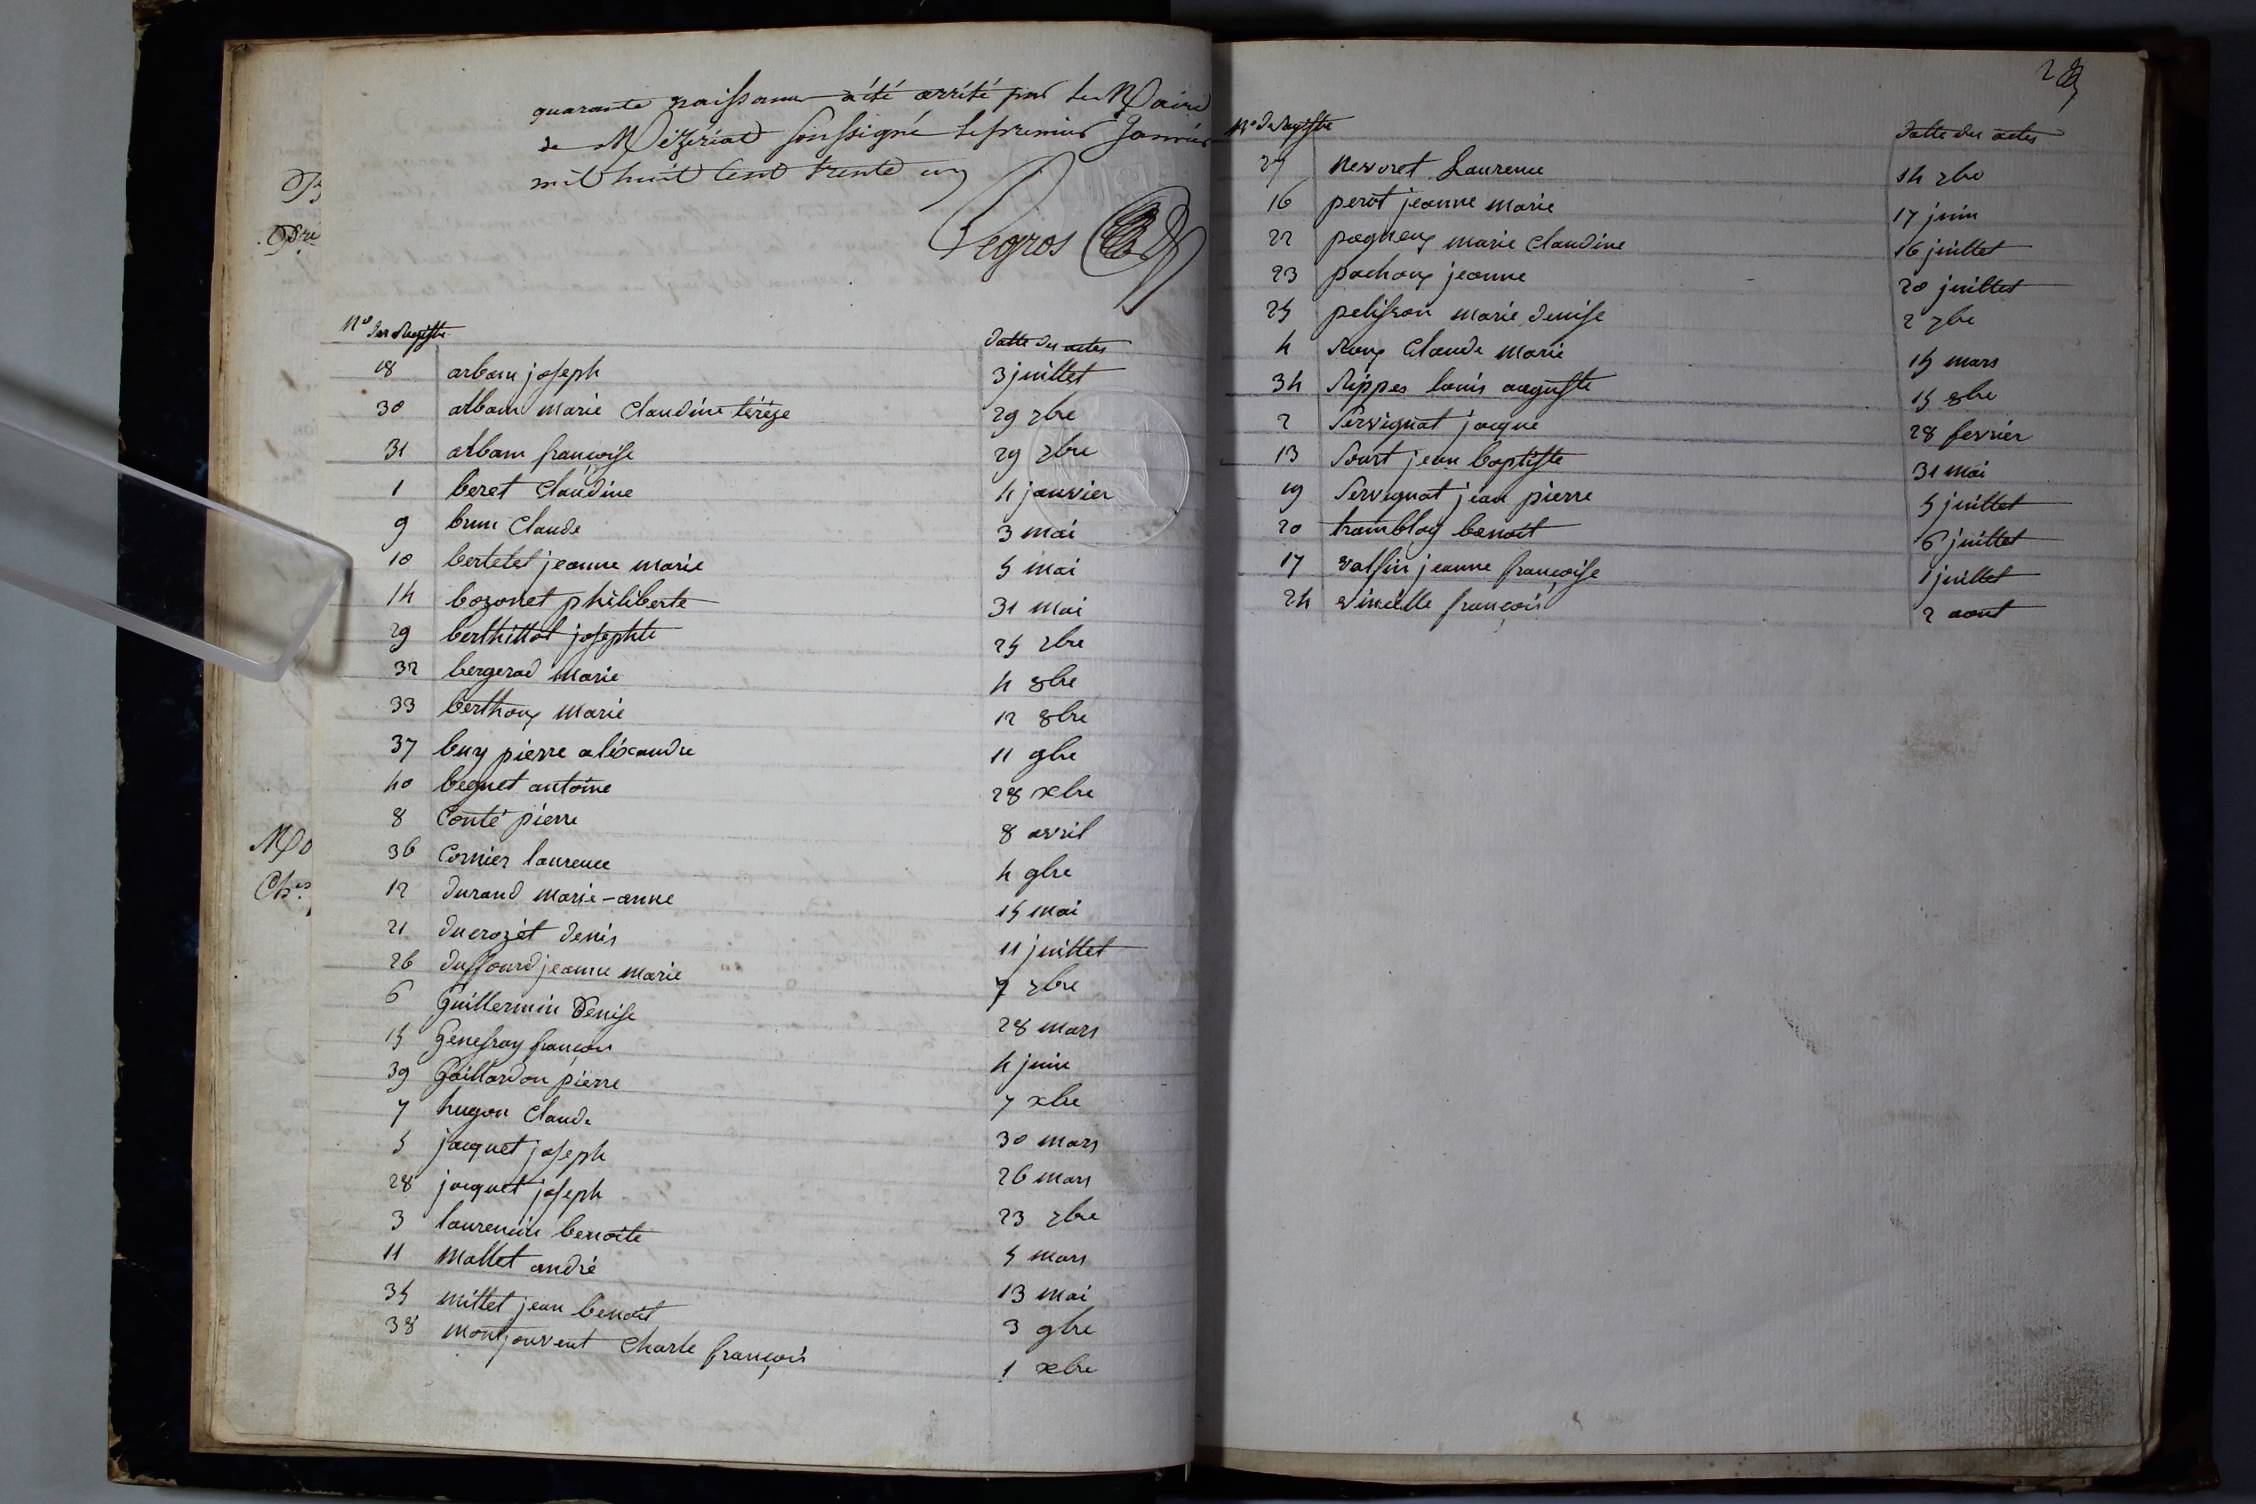 quarante naissance a été arrété par le Maire
de Mézériat soussigné le premier Janvier
mil huit cent trente un
Legros
B
Pre
Mo
Ch.
N° des Registre datte des actes
18 arban joseph 3 juillet
30 alban marie Claudine térèze 29 7bre
31 alban françoise 29 7bre
1 beret Claudine 4 janvier
9 brun Claude 3 mai
10 bertelet jeanne marie 5 mai
14 bozonet philiberte 31 mai
29 berthillot josephte 25 7bre
32 bergerad Marie 4 8bre
33 berthoux Marie 12 8bre
37 buy pierre aléxandre 11 9bre
40 beguet antoine 28 xbre
8 Conté pierre 8 avril
36 Cornier laurence 4 9bre
12 durand marie-anne 15 mai
21 ducrozet denis 11 juillet
26 duffourd jeanne marie 9 7bre
6 Guillermin Denise 28 mars
15 Genefray françois 4 juin
39 Gaillardon pierre 7 xbre
7 hugon Claude 30 mars
5 jacquet joseph 26 mars
28 jacquet joseph 23 7bre
3 laurencin benoite 5 mars
11 Mallet andré 13 mai
35 millet jean benoit 3 9bre
38 montjouvent Charle françois 1 xbre
28
N° de Registre datte des actes
27 Nevoret Laurence 14 7bre
16 perot jeanne marie 17 juin
22 pagneux marie Claudine 16 juillet
23 pachoux jeanne 20 juillet
25 pelisson marie denise 2 7bre
4 Roux Claude Marie 15 mars
34 Rippes louis auguste 15 8bre
2 Servignat jacque 28 fevrier
13 Sourt jean baptiste 31 mai
19 Servignat jean pierre 5 juillet
20 tramblay benoit 6 juillet
17 valsin jeanne françoise 1 juillet
24 vincille françois 2 aout